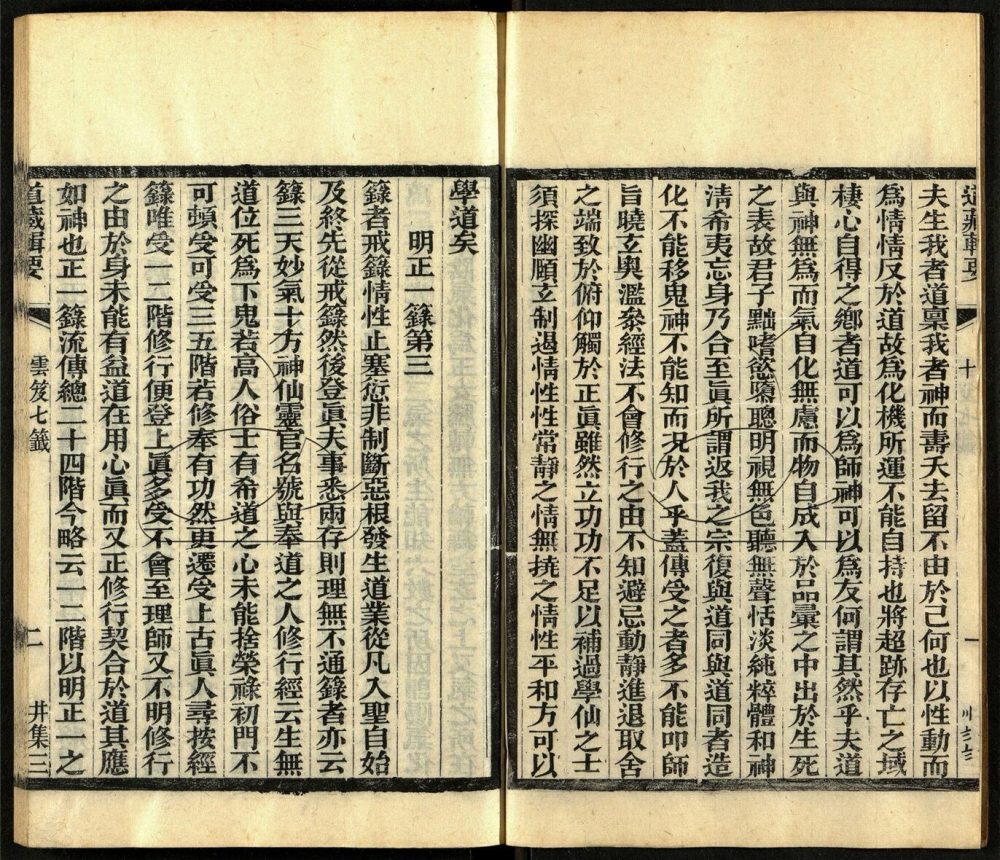 夫生我者道稟我者神而壽夭去留不由於己何也以性動而
爲情情反於道故爲化機所運不能自持也將超跡存亡之域
棲心自得之鄉者道可以爲師神可以爲友何謂其然乎夫道
與神無爲而氣自化無慮而物自成入於品彙之中出於生死
之表故君子黜嗜慾隳聰明視無色聽無聲恬淡純粹體和神
清希夷忘身乃合至眞所謂返我之宗復與道同與道同者造
化不能移鬼神不能知而況於人乎蓋傳受之者多不能叩師
旨曉玄奧濫叅經法不會修行之由不知避忌動靜進退取舍
之端致於俯仰觸於正眞雖然立功功不足以補過學仙之士
須探幽願立制遏情性性常靜之情無撓之情性平和方可以
學道矣
明正一籙第三
籙者戒籙情性止塞愆非制斷惡根發生道業從凡入聖自始
及終先從戒籙然後登眞夫事悉兩存則理無不通籙者亦云
籙三天妙氣十方神仙靈官名號與奉道之人修行經云生無
道位死爲下鬼若高人俗士有希道之心未能捨榮祿初門不
可頓受可受三五階若修奉有功然更遷受上古眞人尋按經
籙唯受一二階修行便登上眞多受不會至理師又不明修行
之由於身未能有益道在用心眞而又正修行契合於道其應
如神也正一籙流傳總二十四階今略云一二階以明正一之
道藏輯要 雲笈七籤 二 井集三